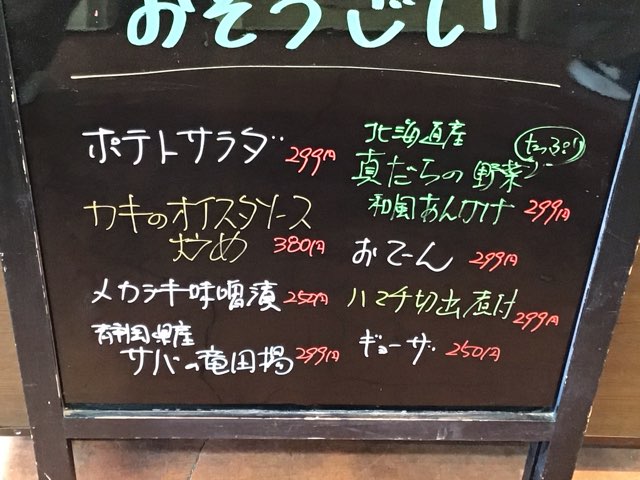 おそうざい
ポテトサラダ 299円
カキのオイスタソース
炒め 380円
メカジキ味噌漬 250円
静岡県産
サバの竜田揚 299円
北海道産
真だらの野菜 たっぷり
和風あんかけ 299円
おでーん 299円
ハマチ切出煮付 299円
ギョーザ 250円